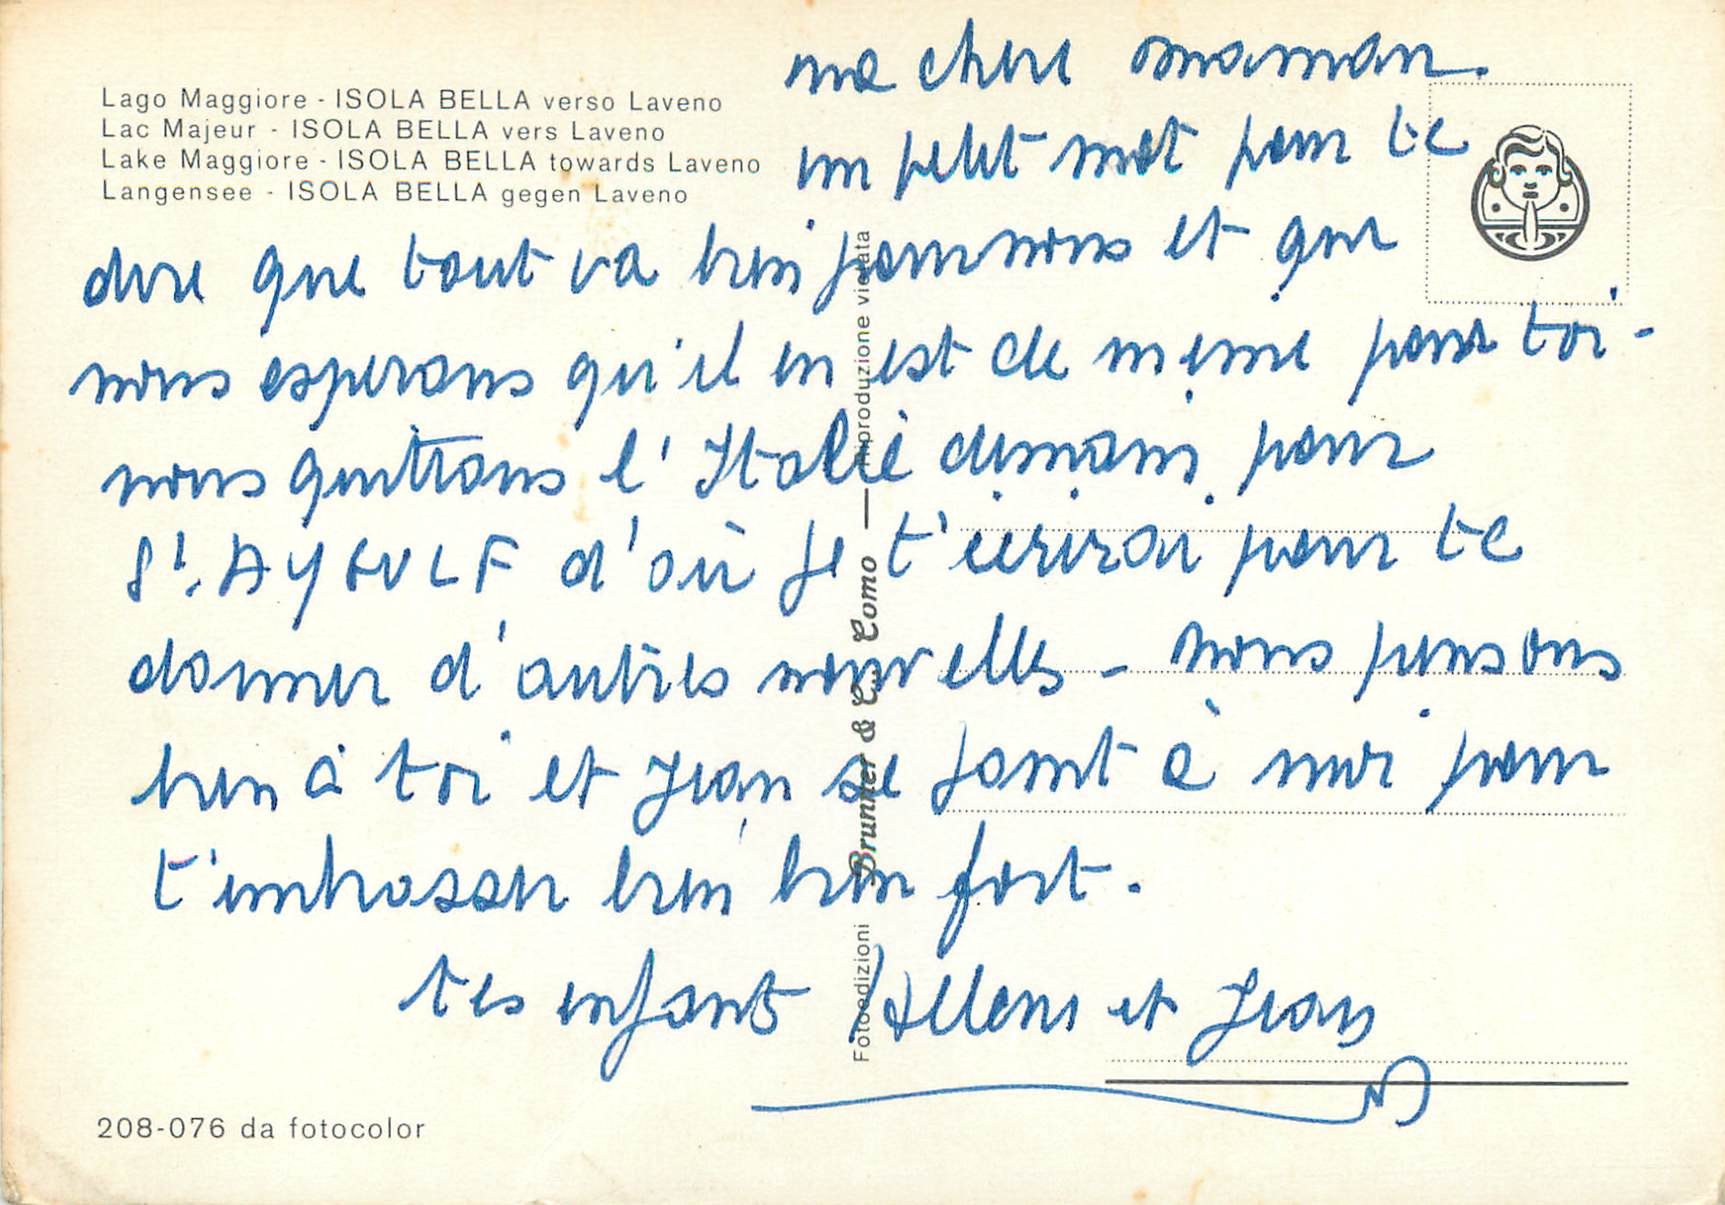 Lago Maggiore - ISOLA BELLA verso Laveno
Lac Majeur - ISOLA BELLA vers Laveno
Lake Maggiore - ISOLA BELLA towards Laveno
Langensee - ISOLA BELLA gegen Laveno
ma chere maman.
un petit mot pour te
dire que tout va bien pour nous et que
nous esperons qu'il en est de meme pour toi -
nous quittons l'Italie demain pour
St. AYGULF d'où je t'ecrirai pour te
donner d'autres nouvelles - nous pensons
bien à toi et Jean se joint à moi pour
t'embrasser bien bien fort.
tes enfants et Jean
Fotoedizioni Brunner & C., Como — Riproduzione vietata
208-076 da fotocolor